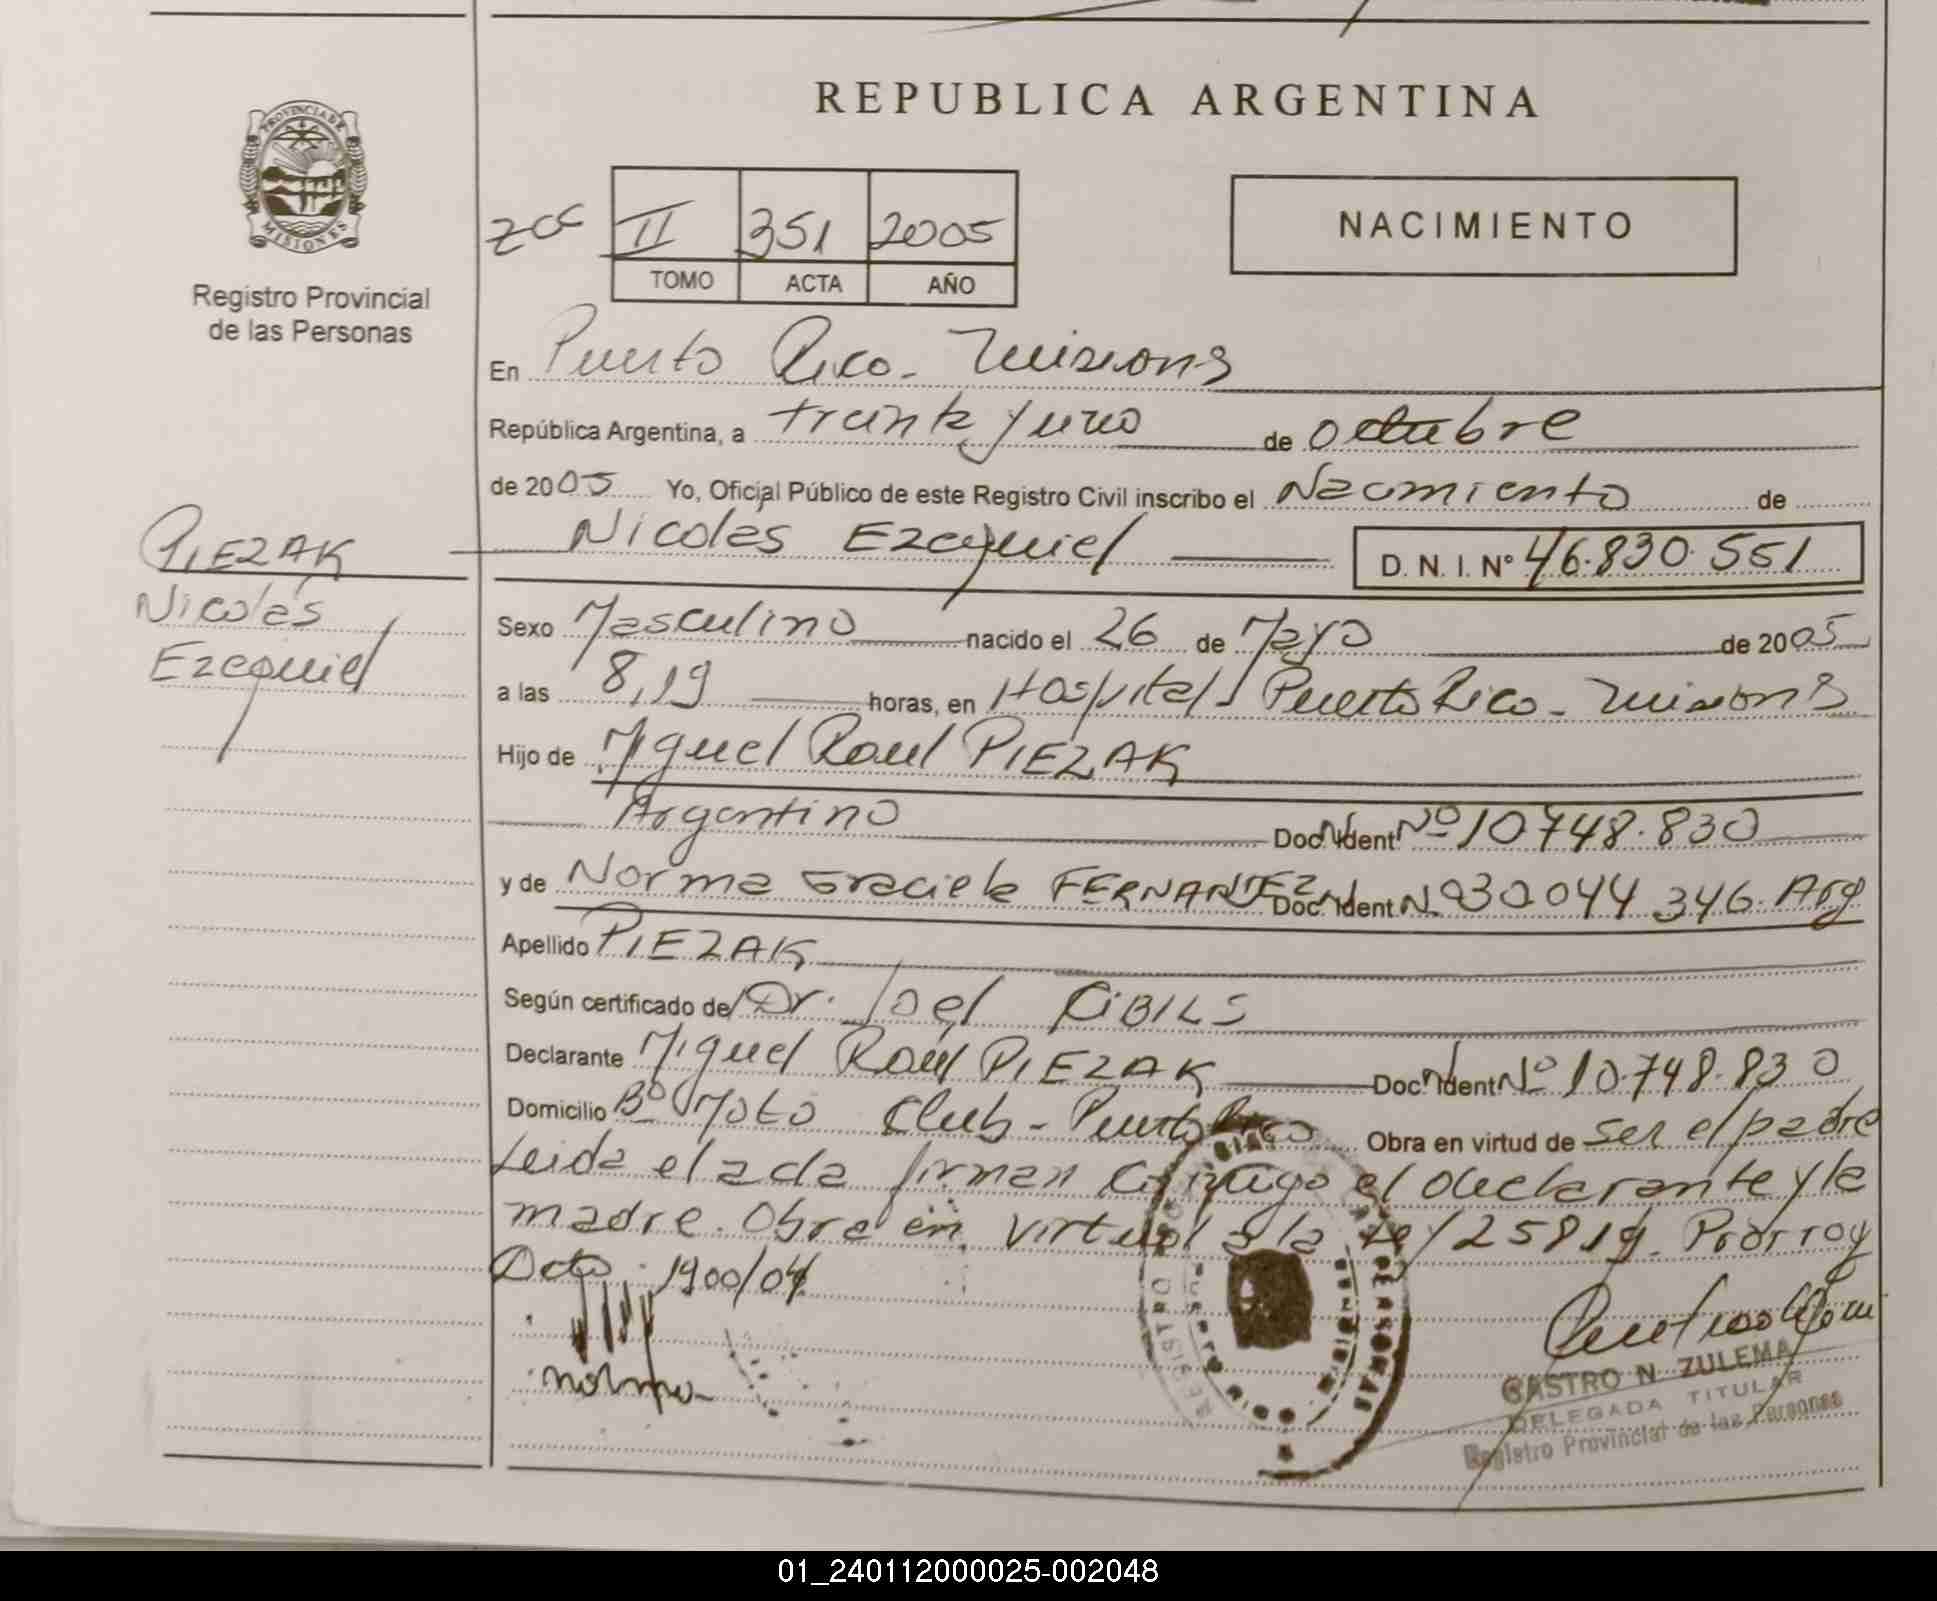 REPUBLICA ARGENTINA
PROVINCIA DE MISIONES
Registro Provincial
de las Personas
II 351 2005
TOMO ACTA AÑO
NACIMIENTO
En Puerto Rico - Misiones
República Argentina, a treinta y uno de octubre
de 2005 Yo, Oficial Público de este Registro Civil inscribo el Nacimiento de
Nicolás Ezequiel D. N. I. N° 46.830.551
PIEZAK
Nicolás
Ezequiel
Sexo Masculino nacido el 26 de Mayo de 2005
a las 8,19 horas, en Hospital Puerto Rico - Misiones
Hijo de Miguel Raul PIEZAK
Argentino Doc. Ident. Nº 10.748.830
y de Norma Graciela FERNANDEZ Doc. Ident. Nº 30.044.346. Arg
Apellido PIEZAK
Según certificado de Dr. Joel CIBILS
Declarante Miguel Raúl PIEZAK Doc. Ident. Nº 10.748.830
Domicilio Bº Moto Club - Puerto Rico Obra en virtud de ser el padre
Leida el acta firman conmigo el declarante y la
madre. Obra en virtud a la Ley 25819. Prorrog
Dcto. 1900/04
norma
CASTRO N. ZULEMA
DELEGADA TITULAR
Registro Provincial de las Personas
01_240112000025-002048